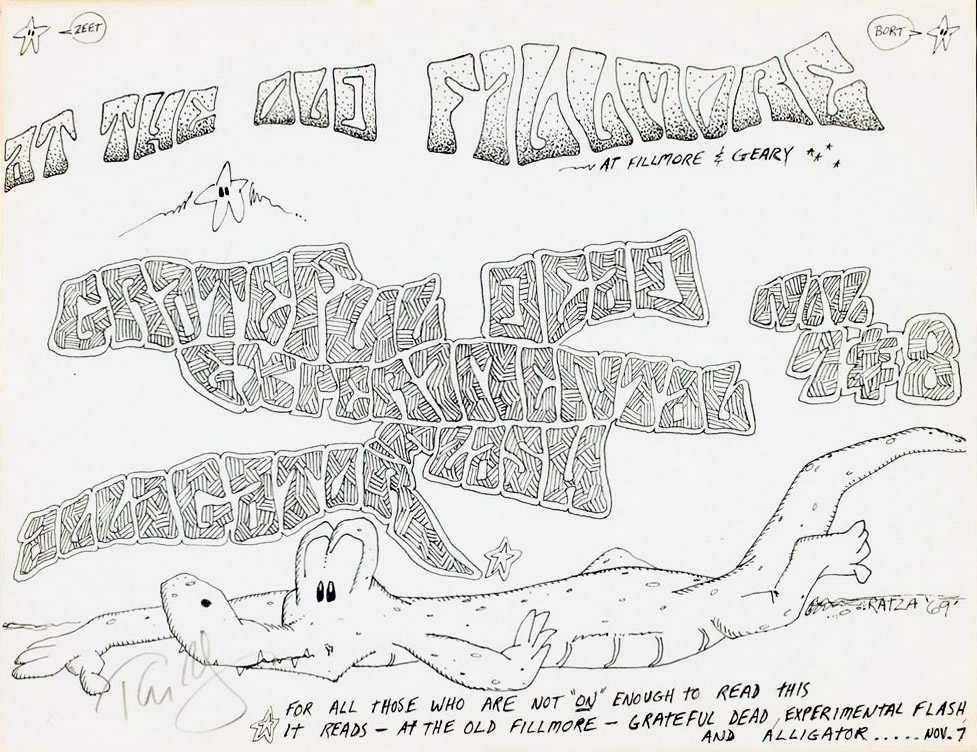 ZEET
BORT
AT THE OLD FILLMORE
AT FILLMORE & GEARY
GRATEFUL DEAD
NOV.
7 & 8
EXPERIMENTAL
FLASH
ALLIGATOR
RATZA '69'
FOR ALL THOSE WHO ARE NOT "ON" ENOUGH TO READ THIS
IT READS - AT THE OLD FILLMORE - GRATEFUL DEAD, EXPERIMENTAL FLASH
AND ALLIGATOR ..... NOV. 7